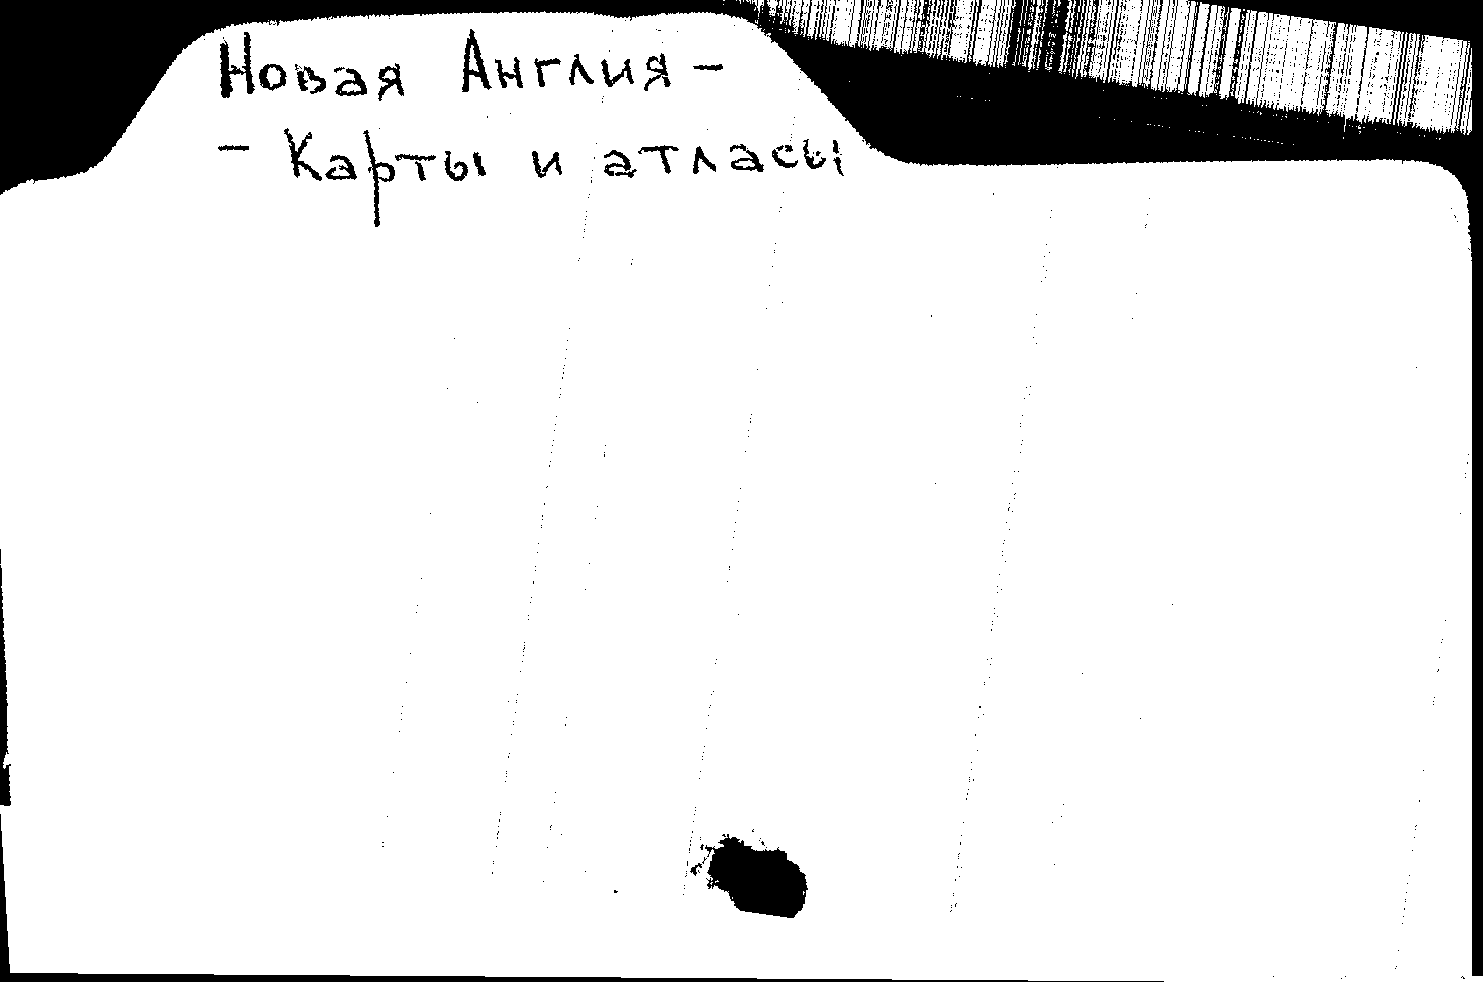 Новая Англия -
- Карты и атласы